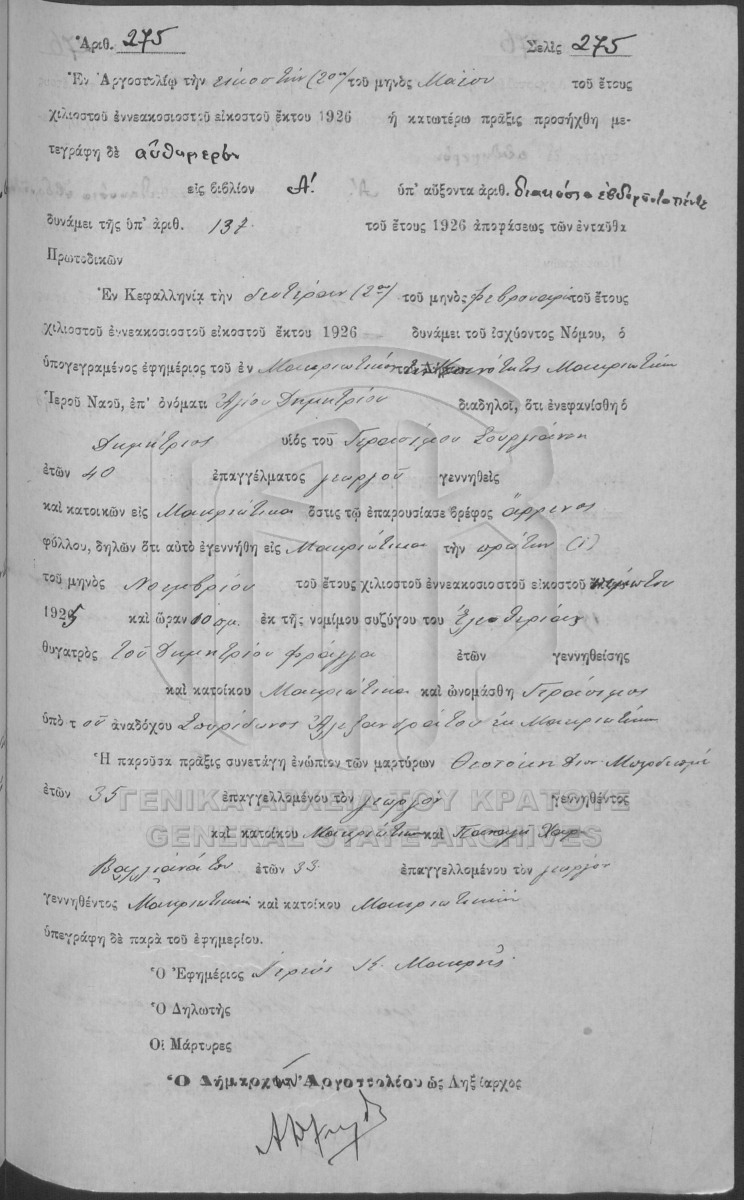 Ἀριθ. 275 Σελὶς 275
Ἐν Ἀργοστολίῳ τὴν εἰκοστὴν (20ην) τοῦ μηνὸς Μαΐου τοῦ ἔτους
χιλιοστοῦ ἐννεακοσιοστοῦ εἰκοστοῦ ἕκτου 1926 ἡ κατωτέρω πρᾶξις προσήχθη με-
τεγράφη δὲ αὐθημερὸν
εἰς βιβλίον Α΄. ὑπ᾽ αὔξοντα ἀριθ. διακόσια ἑβδομήντα πέντε
δυνάμει τῆς ὑπ᾽ ἀριθ. 137 τοῦ ἔτους 1926 ἀποφάσεως τῶν ἐνταῦθα
Πρωτοδικῶν
Ἐν Κεφαλληνίᾳ τὴν δευτέραν (2αν) τοῦ μηνὸς Φεβρουαρίου τοῦ ἔτους
χιλιοστοῦ ἐννεακοσιοστοῦ εἰκοστοῦ ἕκτου 1926 δυνάμει τοῦ ἰσχύοντος Νόμου, ὁ
ὑπογεγραμένος ἐφημέριος τοῦ ἐν Μακριωτίκα Κοινότητος Μακριωτίκων
Ἱεροῦ Ναοῦ, ἐπ᾽ ὀνόματι Ἁγίου Δημητρίου διαδηλοῖ, ὅτι ἐνεφανίσθη ὁ
Δημήτριος υἱὸς τοῦ Γερασίμου Σουργιάννη
ἐτῶν 40 ἐπαγγέλματος γεωργοῦ γεννηθεὶς
καὶ κατοικῶν εἰς Μακριώτικα ὅστις τῷ ἐπαρουσίασε βρέφος ἄρρενος
φύλλου, δηλῶν ὅτι αὐτὸ ἐγεννήθη εἰς Μακριώτικα τὴν πρώτην (1)
τοῦ μηνὸς Νοεμβρίου τοῦ ἔτους χιλιοστοῦ ἐννεακοσιοστοῦ εἰκοστοῦ πέμπτου
1925 καὶ ὥραν 10 πμ. ἐκ τῆς νομίμου συζύγου του Ἐλευθερίας
θυγατρὸς τοῦ Δημητρίου Φράγγα ἐτῶν γεννηθείσης
καὶ κατοίκου Μακριώτικα καὶ ὠνομάσθη Γεράσιμος
ὑπὸ τοῦ ἀναδόχου Σπυρίδωνος Ἀλεξανδράτου ἐκ Μακριωτίκων
Ἡ παροῦσα πρᾶξις συνετάγη ἐνώπιον τῶν μαρτύρων Θεοτόκη Διον.
ἐτῶν 35 ἐπαγγελλομένου τὸν γεωργὸν γεννηθέντος
καὶ κατοίκου Μακριώτικα καὶ Παναγῆ Χαρ.
Βαλλιανάτου ἐτῶν 33 ἐπαγγελλομένου τὸν γεωργὸν
γεννηθέντος Μακριωτίκων καὶ κατοίκου Μακριωτίκων
ὑπεγράφη δὲ παρὰ τοῦ ἐφημερίου.
Ὁ Ἐφημέριος Ἱερεὺς Κ. Μακρῆς
Ὁ Δηλωτὴς
Οἱ Μάρτυρες
Ὁ Δήμαρχος Ἀργοστολίου ὡς Ληξίαρχος
ΓΕΝΙΚΑ ΑΡΧΕΙΑ ΤΟΥ ΚΡΑΤΟΥΣ
GENERAL STATE ARCHIVES